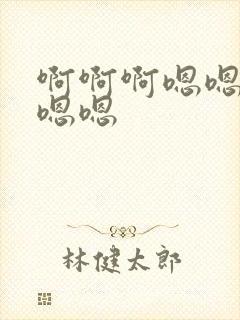 啊啊啊嗯嗯
嗯嗯
林健太郎